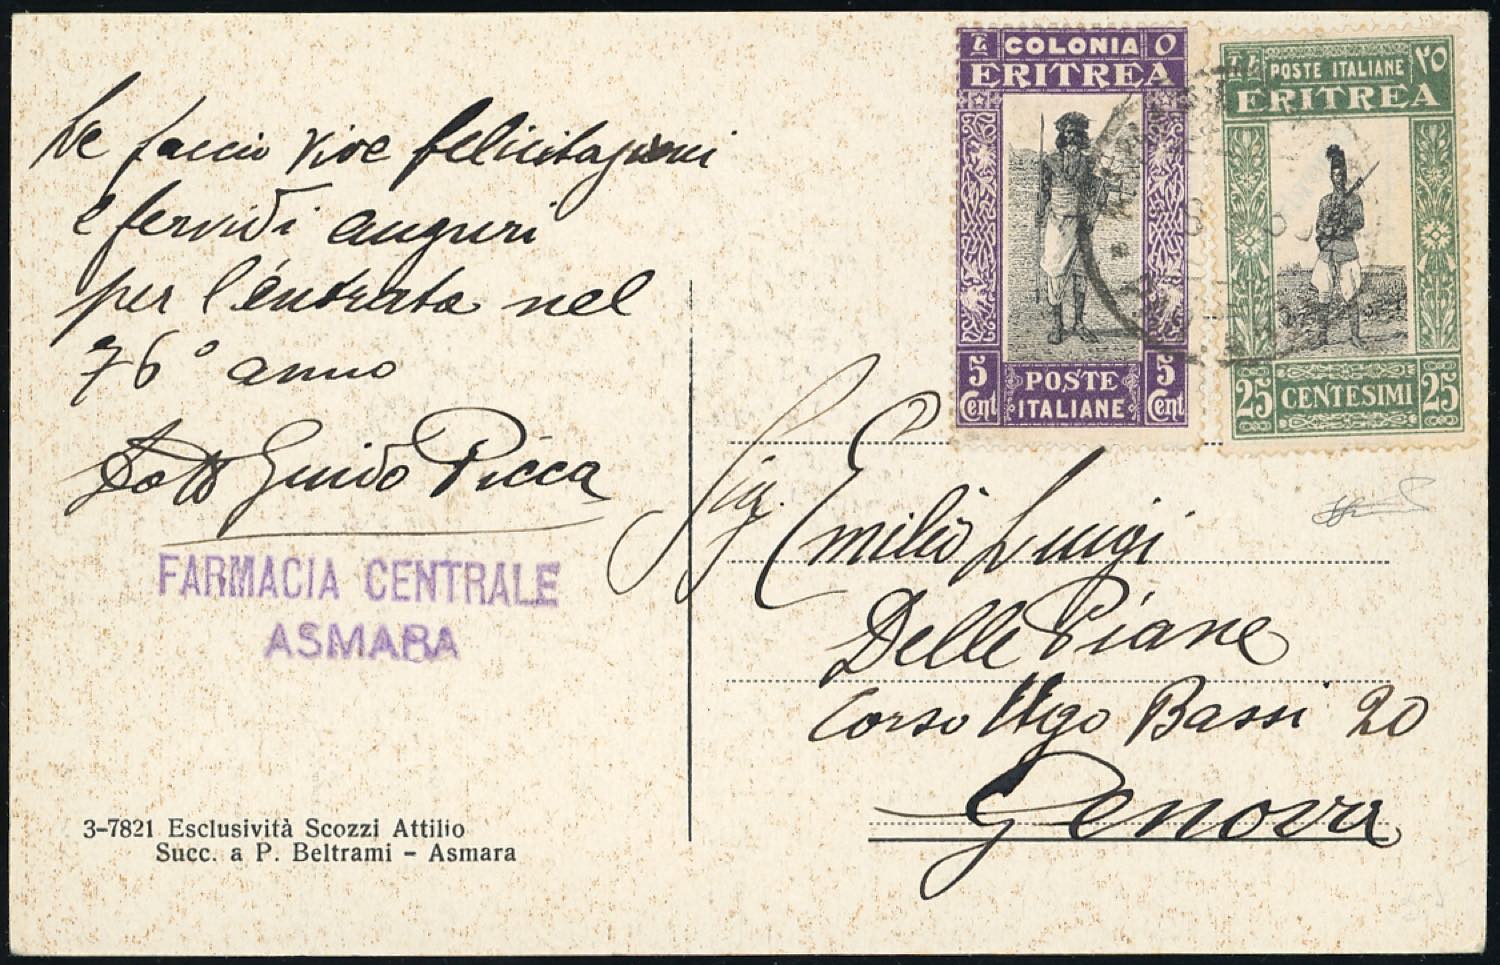 Le faccio vive felicitazioni
e fervidi auguri
per l'entrata nel
76° anno
Dott Guido Picca
FARMACIA CENTRALE
ASMARA
3-7821 Esclusività Scozzi Attilio
Succ. a P. Beltrami - Asmara
COLONIA
ERITREA
5 Cent
POSTE ITALIANE
5 Cent
POSTE ITALIANE ٢٥
ERITREA
25 CENTESIMI 25
Sig. Emilio Luigi
Delle Piane
Corso Ugo Bassi 20
Genova